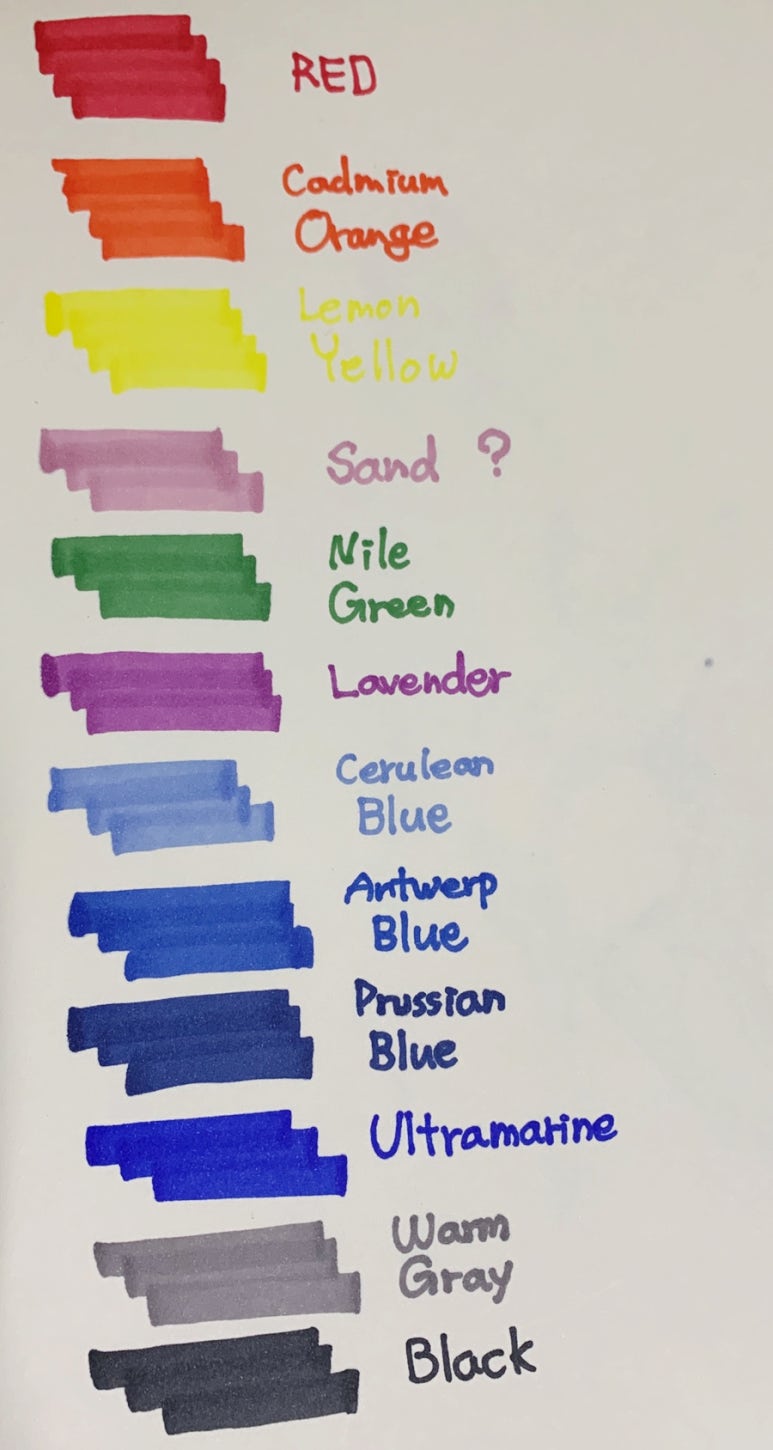 RED
Cadmium
Orange
Lemon
Yellow
Sand ?
Nile
Green
Lavender
Cerulean
Blue
Antwerp
Blue
Prussian
Blue
Ultramarine
Warm
Gray
Black